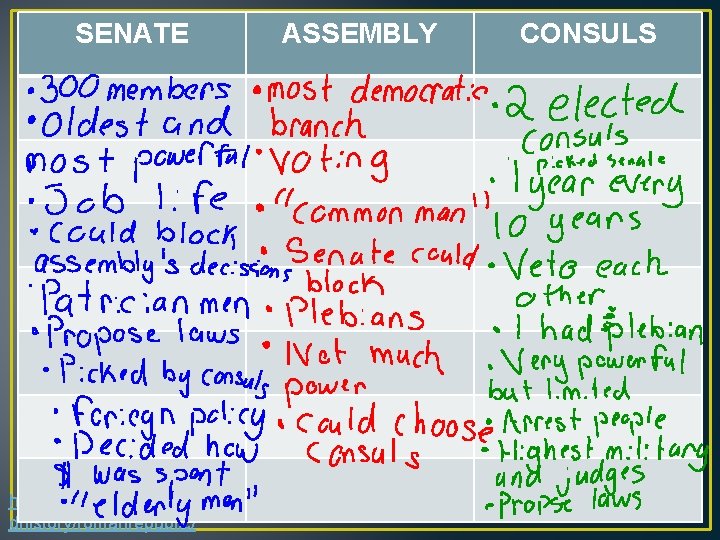 SENATE
ASSEMBLY
CONSULS
• 300 members
• Oldest and
most powerful
• Job life
• Could block
assembly's decisions
• Patrician men
• Propose laws
• Picked by consuls
• Foriegn policy
• Decided how
$ was spent
• "elderly men"
• most democratic
branch
• Voting
• "Common man"
• Senate could
block
• Plebians
• Not much
power
• Could choose
consuls
• 2 elected
Consuls
picked senate
• 1 year every
10 years
• Veto each
other
• 1 had plebian
• Very powerful
but limited
• Arrest people
• Highest military
and judges
• Propse laws